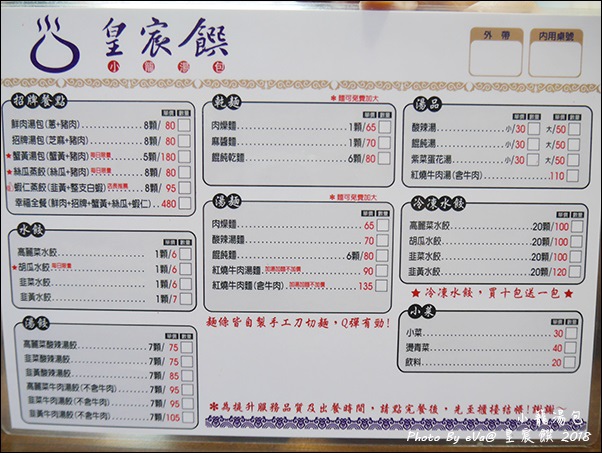 皇宸饌
小籠湯包
外帶
內用桌號
招牌餐點
單價 數量
鮮肉湯包(蔥+豬肉) 8顆/ 80
招牌湯包(芝麻+豬肉) 8顆/ 80
★蟹黃湯包(蟹黃+豬肉) 每日限量 5顆/ 180
★絲瓜蒸餃(絲瓜+豬肉) 每日限量 8顆/ 80
蝦仁蒸餃(韭黃+整支白蝦) 8顆/ 95
幸福全餐(鮮肉+招牌+蟹黃+絲瓜+蝦仁) 480
水餃
單價 數量
高麗菜水餃 1顆/6
★胡瓜水餃 每日限量 1顆/6
韭菜水餃 1顆/6
韭黃水餃 1顆/7
湯餃
單價 數量
高麗菜酸辣湯餃 7顆/ 75
韭菜酸辣湯餃 7顆/ 75
韭黃酸辣湯餃 7顆/ 85
高麗菜牛肉湯餃(不含牛肉) 7顆/ 95
韭菜牛肉湯餃(不含牛肉) 7顆/ 95
韭黃牛肉湯餃(不含牛肉) 7顆/105
乾麵
*麵可免費加大
單價 數量
肉燥麵 1顆/65
麻醬麵 1顆/70
餛飩乾麵 6顆/80
湯麵
*麵可免費加大
單價 數量
肉燥麵 65
酸辣湯麵 70
餛飩麵 6顆/80
紅燒牛肉湯麵 加湯加麵不加價 90
紅燒牛肉麵(含牛肉) 加湯加麵不加價 135
麵條皆自製手工刀切麵，Q彈有勁!
湯品
單價 數量 單價 數量
酸辣湯 小/30 大/50
餛飩湯 小/30 大/50
紫菜蛋花湯 小/30 大/50
紅燒牛肉湯(含牛肉) 110
冷凍水餃
單價 數量
高麗菜水餃 20顆/100
胡瓜水餃 20顆/100
韭菜水餃 20顆/100
韭黃水餃 20顆/120
★冷凍水餃，買十包送一包★
小菜
單價 數量
小菜 30
燙青菜 40
飲料 20
*為提升服務品質及出餐時間，請點完餐後，先至櫃檯結帳!謝謝
小籠湯包
Photo by eVa@ 皇宸饌 2018